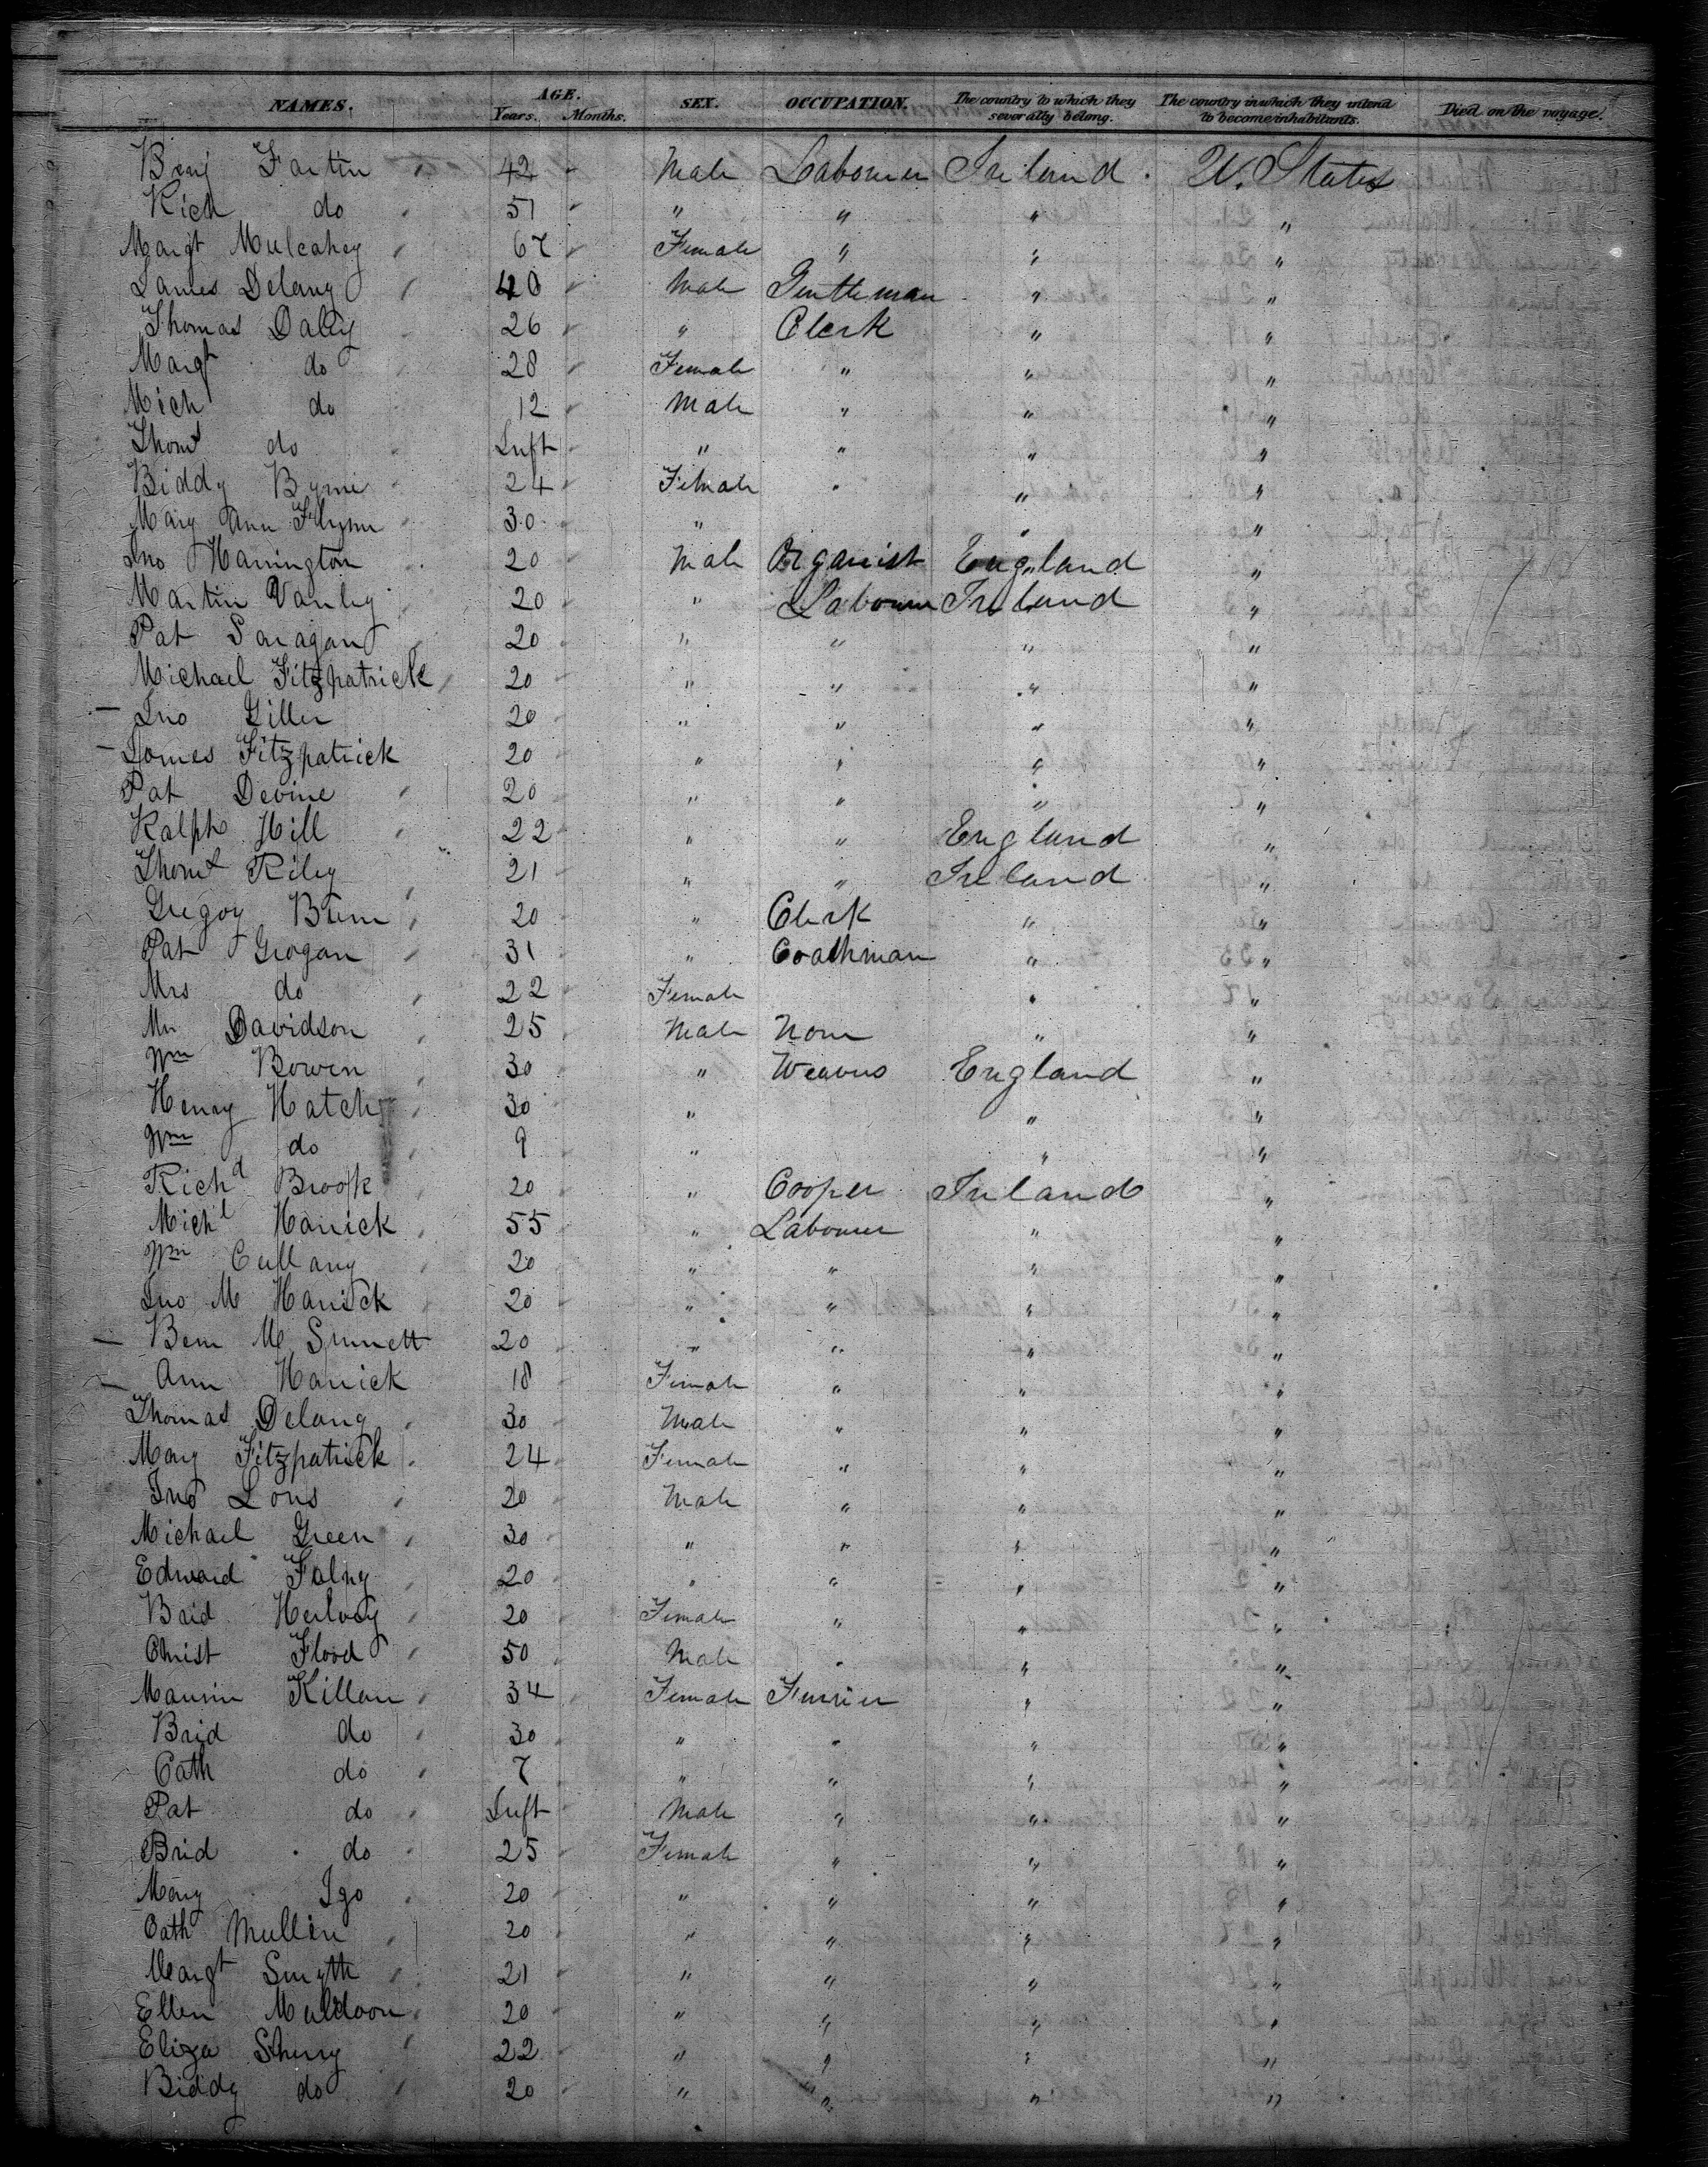 NAMES. AGE. Years. Months. SEX. OCCUPATION. The country to which they severally belong. The country in which they intend to become inhabitants. Died on the voyage.
Benj 42 Male Labourer Ireland U. States
Rich do 51 " " " "
Margt Mulcahey 67 Female " " "
James Delany 40 Male Gentleman " "
Thomas Daley 26 " Clerk " "
Margt do 28 Female " " "
Mich do 12 Male " " "
Thoms do Inft " " " "
Biddy Byrne 24 Female " " "
Mary Ann Flynn 30 " " "
Jno Harrington 20 Male Organist England "
Martin 20 " Labourer Ireland "
Pat 20 " " " "
Michael Fitzpatrick 20 " " " "
— Jno 20 " " " "
— James Fitzpatrick 20 " " " "
Pat Devine 20 " " " "
Ralph Hill 22 " " England "
Thoms Riley 21 " " Ireland "
20 " Clerk " "
Pat Grogan 31 " Coachman " "
Mrs do 22 Female " "
Mr Davidson 25 Male None " "
Wm Bowen 30 " England "
Henry Hatch 30 " " "
Wm do 9 " " "
Richd Brook 20 " Cooper Ireland "
Michl 55 " Labourer " "
Wm 20 " " " "
Jno M 20 " " " "
— M 20 " " " "
— Ann 18 Female " " "
Thomas Delany 30 Male " " "
Mary Fitzpatrick 24 Female " " "
Jno 20 Male " " "
Michael Green 30 " " " "
Edward 20 " " " "
20 Female " " "
Christ Flood 50 Male " " "
34 Female Furrier " "
Brid do 30 " " " "
Cath do 7 " " " "
Pat do Inft Male " " "
Brid do 25 Female " " "
Mary Igo 20 " " " "
Cath Mullen 20 " " " "
Margt Smyth 21 " " " "
Ellen Muldoon 20 " " " "
Eliza Sherry 22 " " " "
Biddy do 20 " " " "